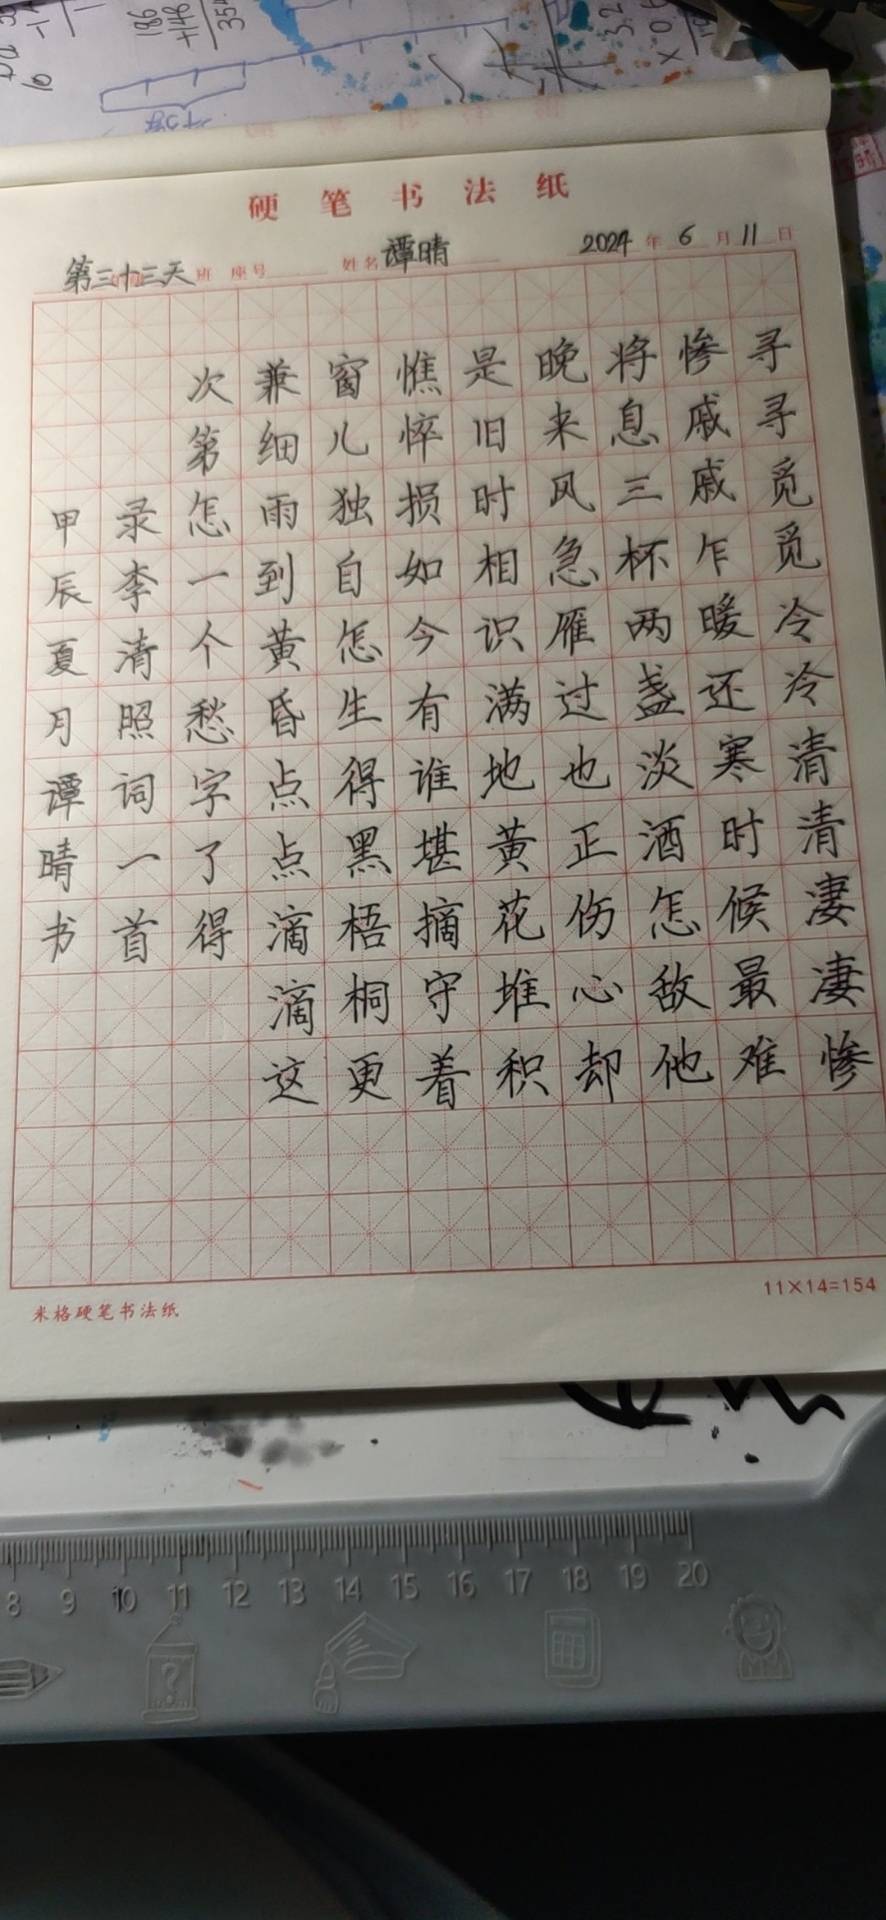 硬笔书法纸
第三十三天 班 座号 姓名 谭晴 2024 年 6 月 11 日
寻寻觅觅冷冷清清凄凄惨
惨戚戚乍暖还寒时候最难
将息三杯两盏淡酒怎敌他
晚来风急雁过也正伤心却
是旧时相识满地黄花堆积
憔悴损如今有谁堪摘守着
窗儿独自怎生得黑梧桐更
兼细雨到黄昏点点滴滴这
次第怎一个愁字了得
录李清照词一首
甲辰夏月谭晴书
米格硬笔书法纸
11×14=154
8 9 10 11 12 13 14 15 16 17 18 19 20